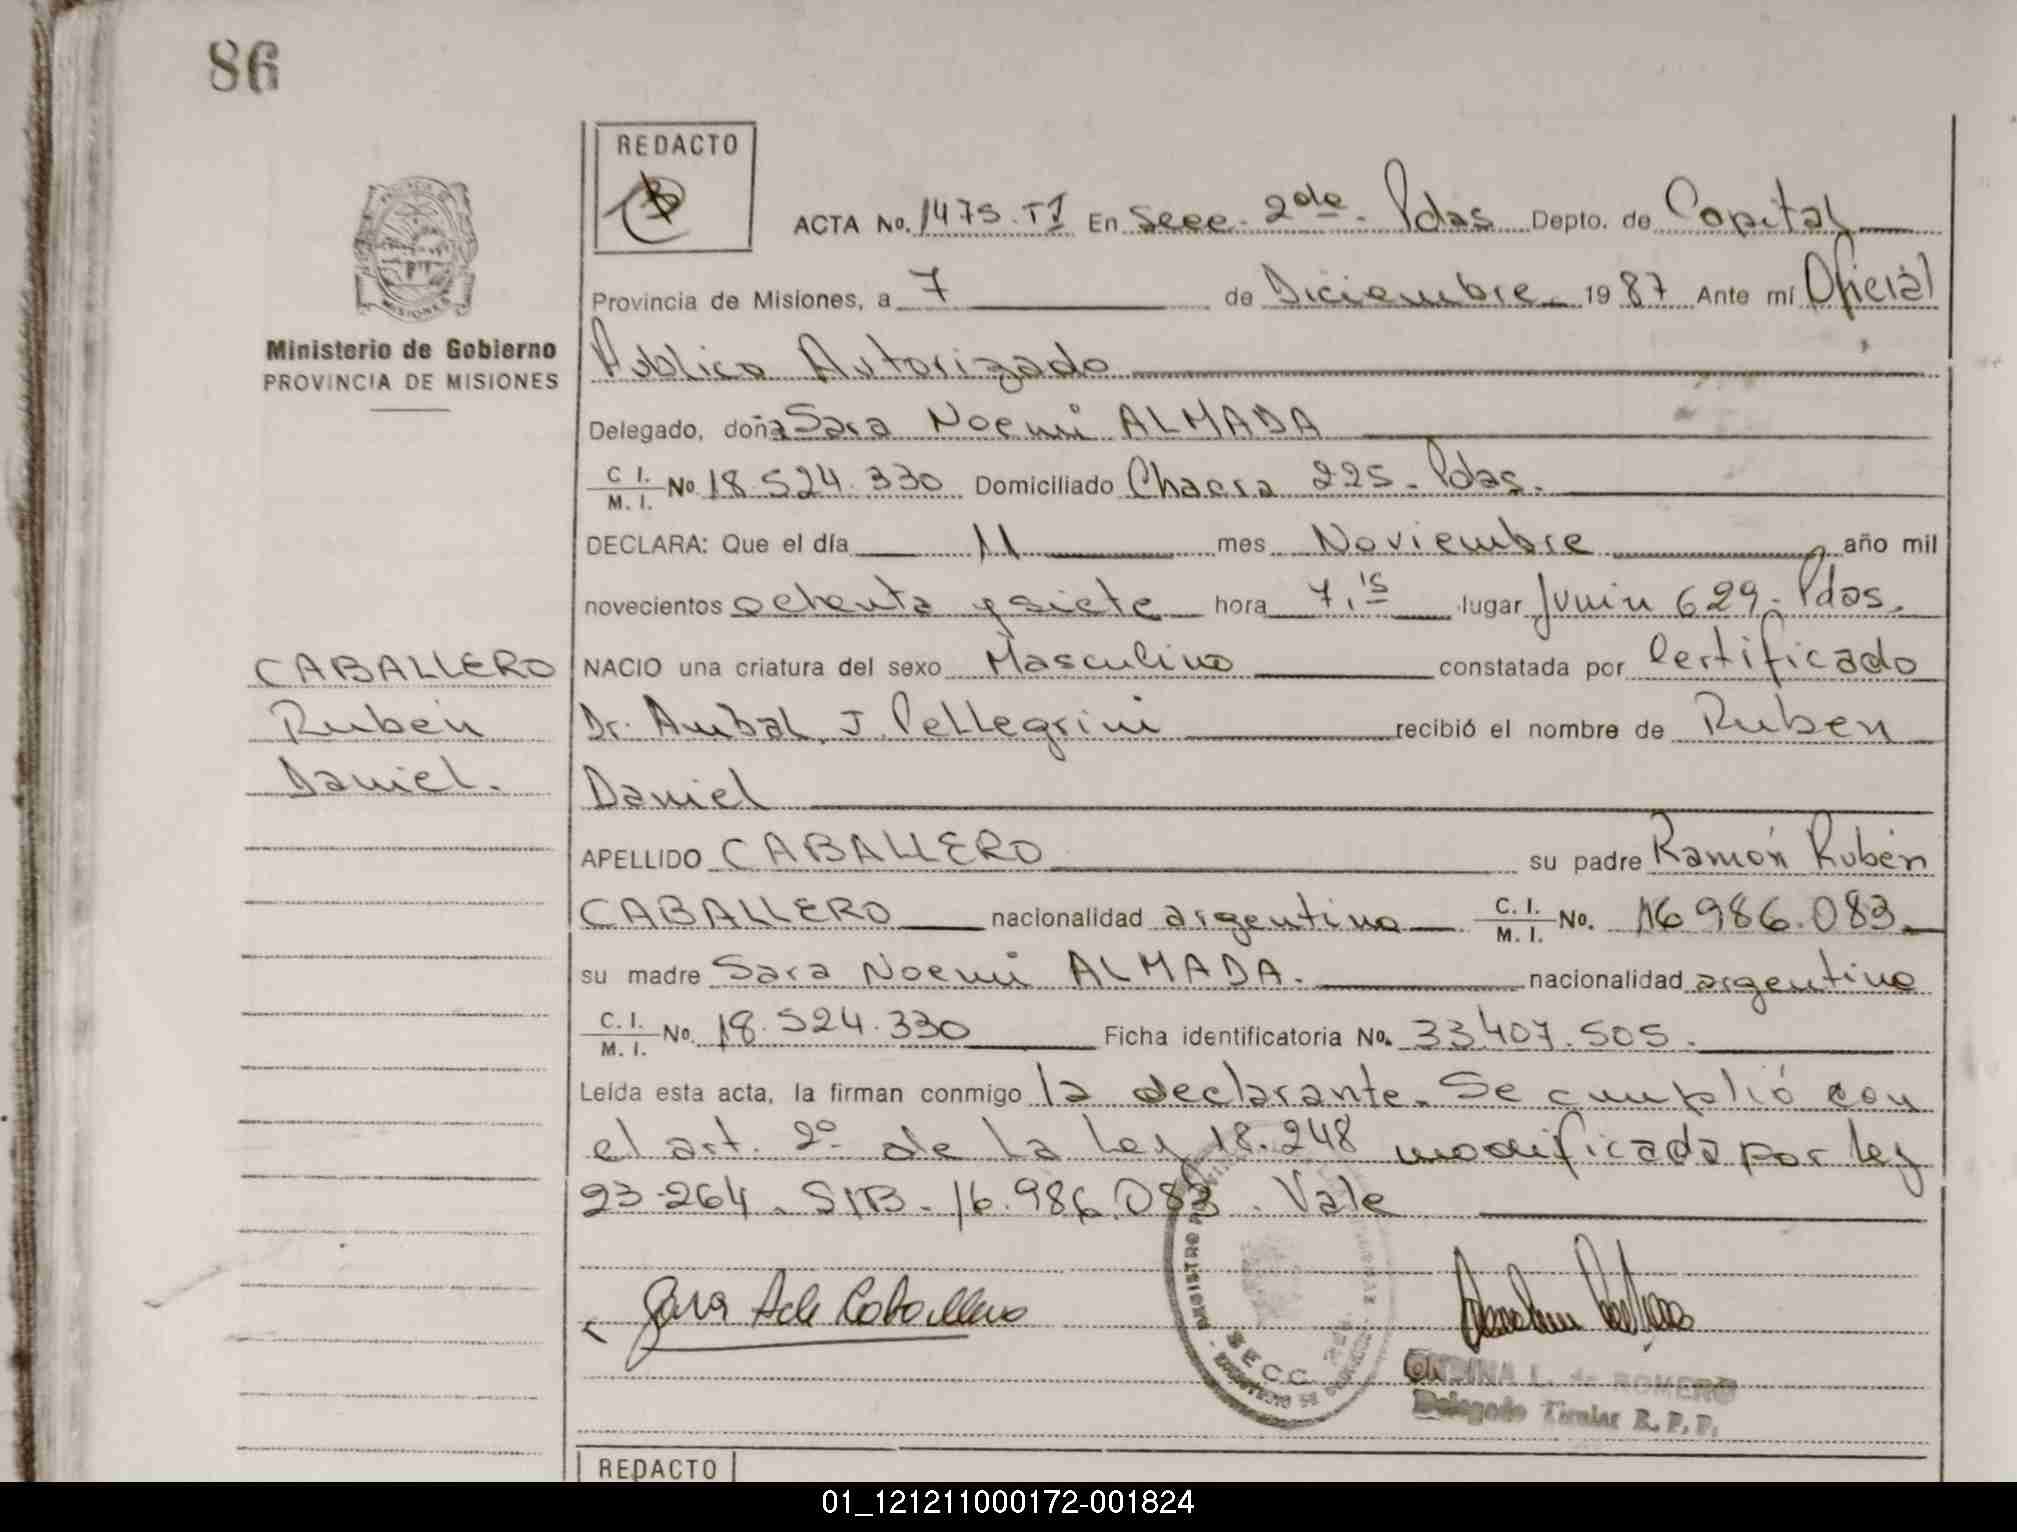 86
REDACTO
ACTA No. 1475. T1 En Secc. 2da. Pdas Depto. de Capital
Provincia de Misiones, a 7 de Diciembre 1987 Ante mí Oficial
Ministerio de Gobierno
PROVINCIA DE MISIONES
Público Autorizado
Delegado, doña Sara Noemi ALMADA
C. I.
M. I. No 18.524.330 Domiciliado Chacra 225. Pdas.
DECLARA: Que el día 11 mes Noviembre año mil
novecientos ochenta y siete hora 7,15 lugar Junin 629. Pdas.
CABALLERO
Ruben
Daniel.
NACIO una criatura del sexo Masculino constatada por Certificado
Dr. Anibal J. Pellegrini recibió el nombre de Ruben
Daniel
APELLIDO CABALLERO su padre Ramón Rubén
CABALLERO nacionalidad argentino C. I.
M. I. No. 16986.083
su madre Sara Noemi ALMADA. nacionalidad argentina
C. I.
M. I. No. 18.524.330 Ficha identificatoria No. 33.407.505.
Leída esta acta, la firman conmigo la declarante. Se cumplió con
el art. 2º de la Ley 18.248 modificada por ley
23.264. S/B. 16.986.083. Vale
Sara A de Caballero
SECC. 2da
ONDINA L. de ROMERO
Delegado Titular R. P. P.
REDACTO
01_121211000172-001824